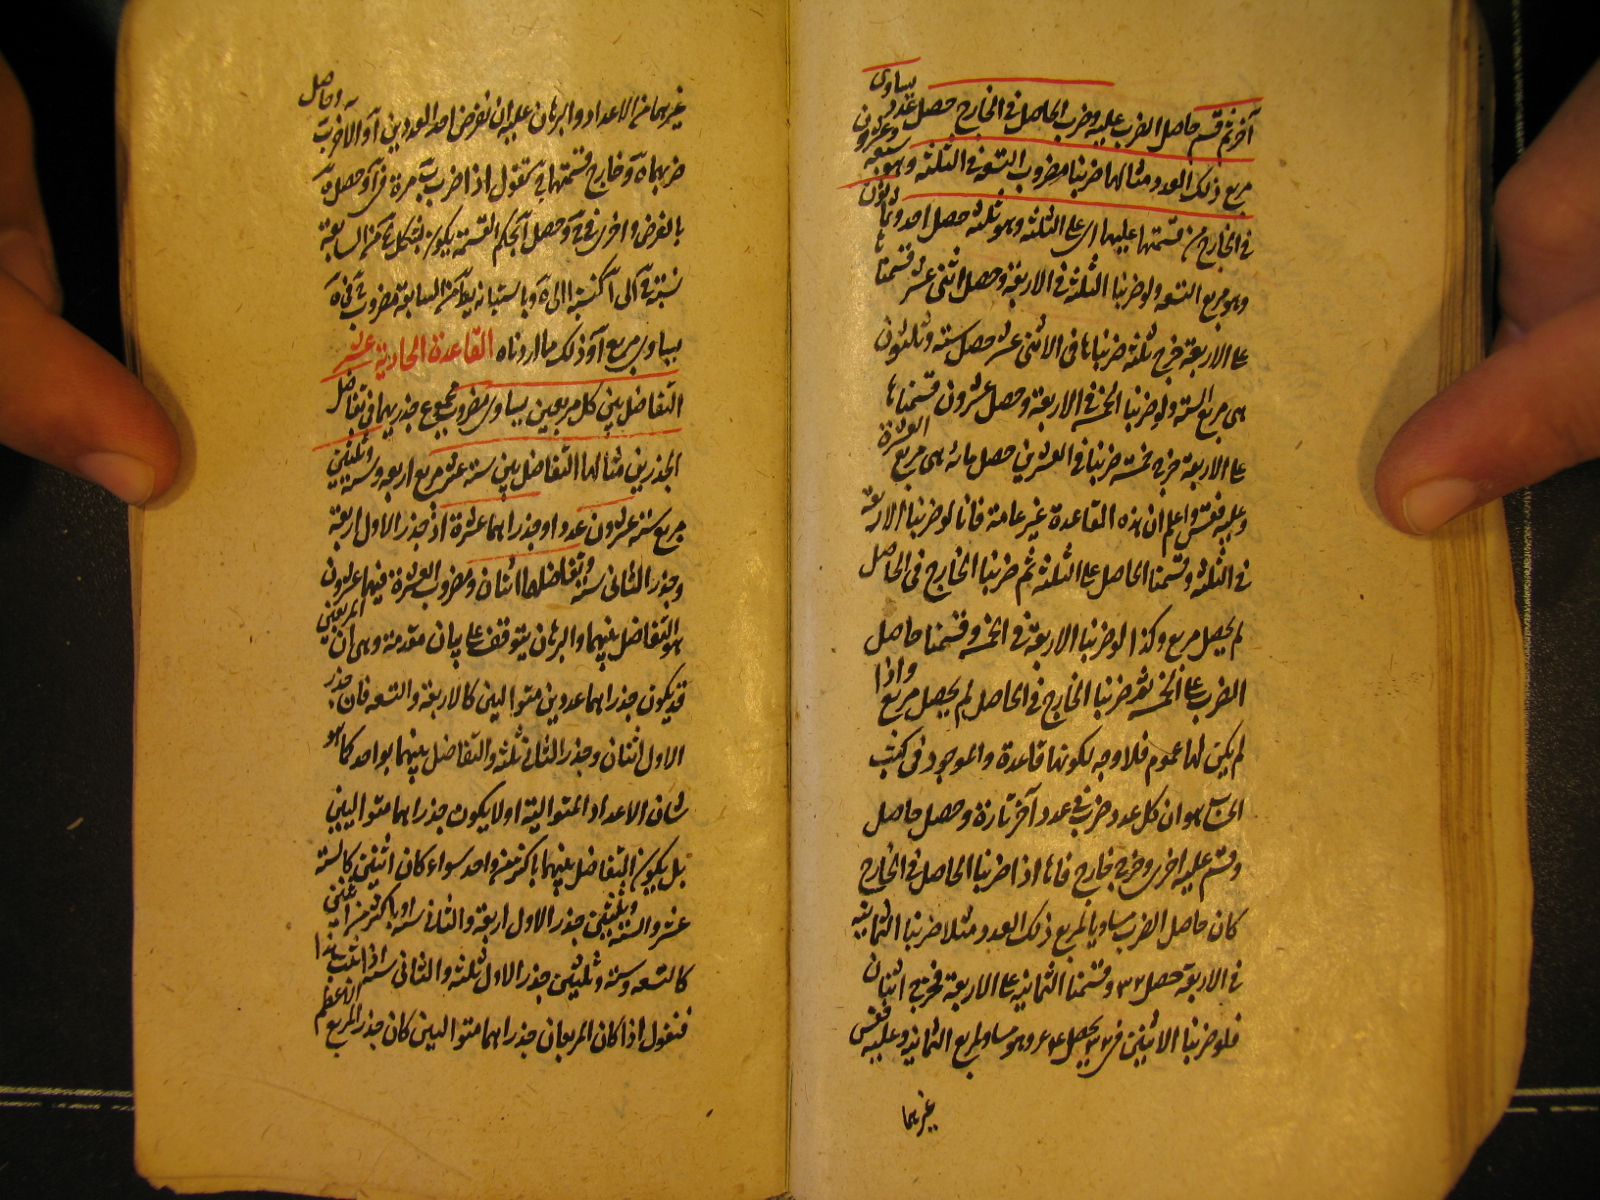 آخر ثم قسم حاصل الضرب عليه وضرب الحاصل فى الخارج حصل عدد يساوى
مربع ذلك العدد مثالها ضربنا مضروب التسعة فى الثلثة وهو سبعة وعشرون
فى الخارج من قسمتها عليها اى على الثلثة وهو ثلثة حصل احد وثمانون
وهو مربع التسعة ولو ضربنا الثلثة فى الاربعة وحصل اثنى عشر قسمناها
على الاربعة خرج ثلثة ضربناها فى الاثنى عشر حصل ستة وثلثون
هى مربع الستة ولو ضربنا الخمسة فى الاربعة وحصل عشرون قسمناها
على الاربعة خرج خمسة ضربنا فى العشرين حصل مائة هى مربع العشرة
وعليه فقس واعلم ان هذه القاعدة غير عامة فانا لو ضربنا الاربعة
فى الثلثة وقسمنا الحاصل على الثلثة ثم ضربنا الخارج فى الحاصل
لم يحصل مربع وكذا لو ضربنا الاربعة فى الخمسة وقسمنا حاصل
الضرب على الخمسة ثم ضربنا الخارج فى الحاصل لم يحصل مربع واذا
لم يكن لها عموم فلا وجه لكونها قاعدة والموجود فى كتب
الحساب هو ان كل عدد ضرب فى عدد آخر تارة وحصل حاصل
وقسم عليه اخرى وخرج خارج فانا اذا ضربنا الحاصل فى الخارج
كان حاصل الضرب مساويا لمربع ذلك العدد مثلا ضربنا الثمانية
فى الاربعة حصل ٣٢ وقسمنا الثمانية على الاربعة فخرج اثنان
فلو ضربنا الاثنين فى ٣٢ يحصل ٦٤ وهو مساو لمربع الثمانية وعليه فقس
غيرهما
غيرهما من الاعداد والبرهان عليه ان نفرض احد العددين آ والآخر ب وحاصل
ضربهما ه وخارج قسمتهما فنقول اذا ضرب ب مرة فى آ وحصل ه
بالفرض واخرى فى وحصل آ بحكم القسمة يكون بشكل من السابعة
نسبة الى آ كنسبة آ الى ه وباستبانة من السابعة مضروب فى ه
يساوى مربع آ وذلك ما اردناه القاعدة الحادية عشر
التفاضل بين كل مربعين يساوى مضروب مجموع جذريهما فى تفاضل
الجذرين مثالها التفاضل بين ستة عشر مربع اربعة وستة وثلثين
مربع ستة عشرون عددا وجذراهما عشرة اذ جذر الاول اربعة
وجذر الثانى ستة وتفاضلهما اثنان ومضروب العشرة فيهما عشرون
هو التفاضل بينهما والبرهان يتوقف على بيان مقدمة وهى ان المربعين
قد يكون جذراهما عددين متواليين كالاربعة والتسعة فان جذر
الاول اثنان وجذر الثانى ثلثة والتفاضل بينهما بواحد كما هو
شان الاعداد المتوالية اولا يكون جذراهما متواليين
بل يكون التفاضل بينهما باكثر من واحد سواء كان اثنين كالستة
عشر والستة وثلثين جذر الاول اربعة والثانى ستة او باكثر من اثنين
كالتسعة وستة وثلثين جذر الاول ثلثة والثانى ستة اذا ثبت هذا
فنقول اذا كان المربعان جذراهما متواليين كان جذر المربع الاعظم